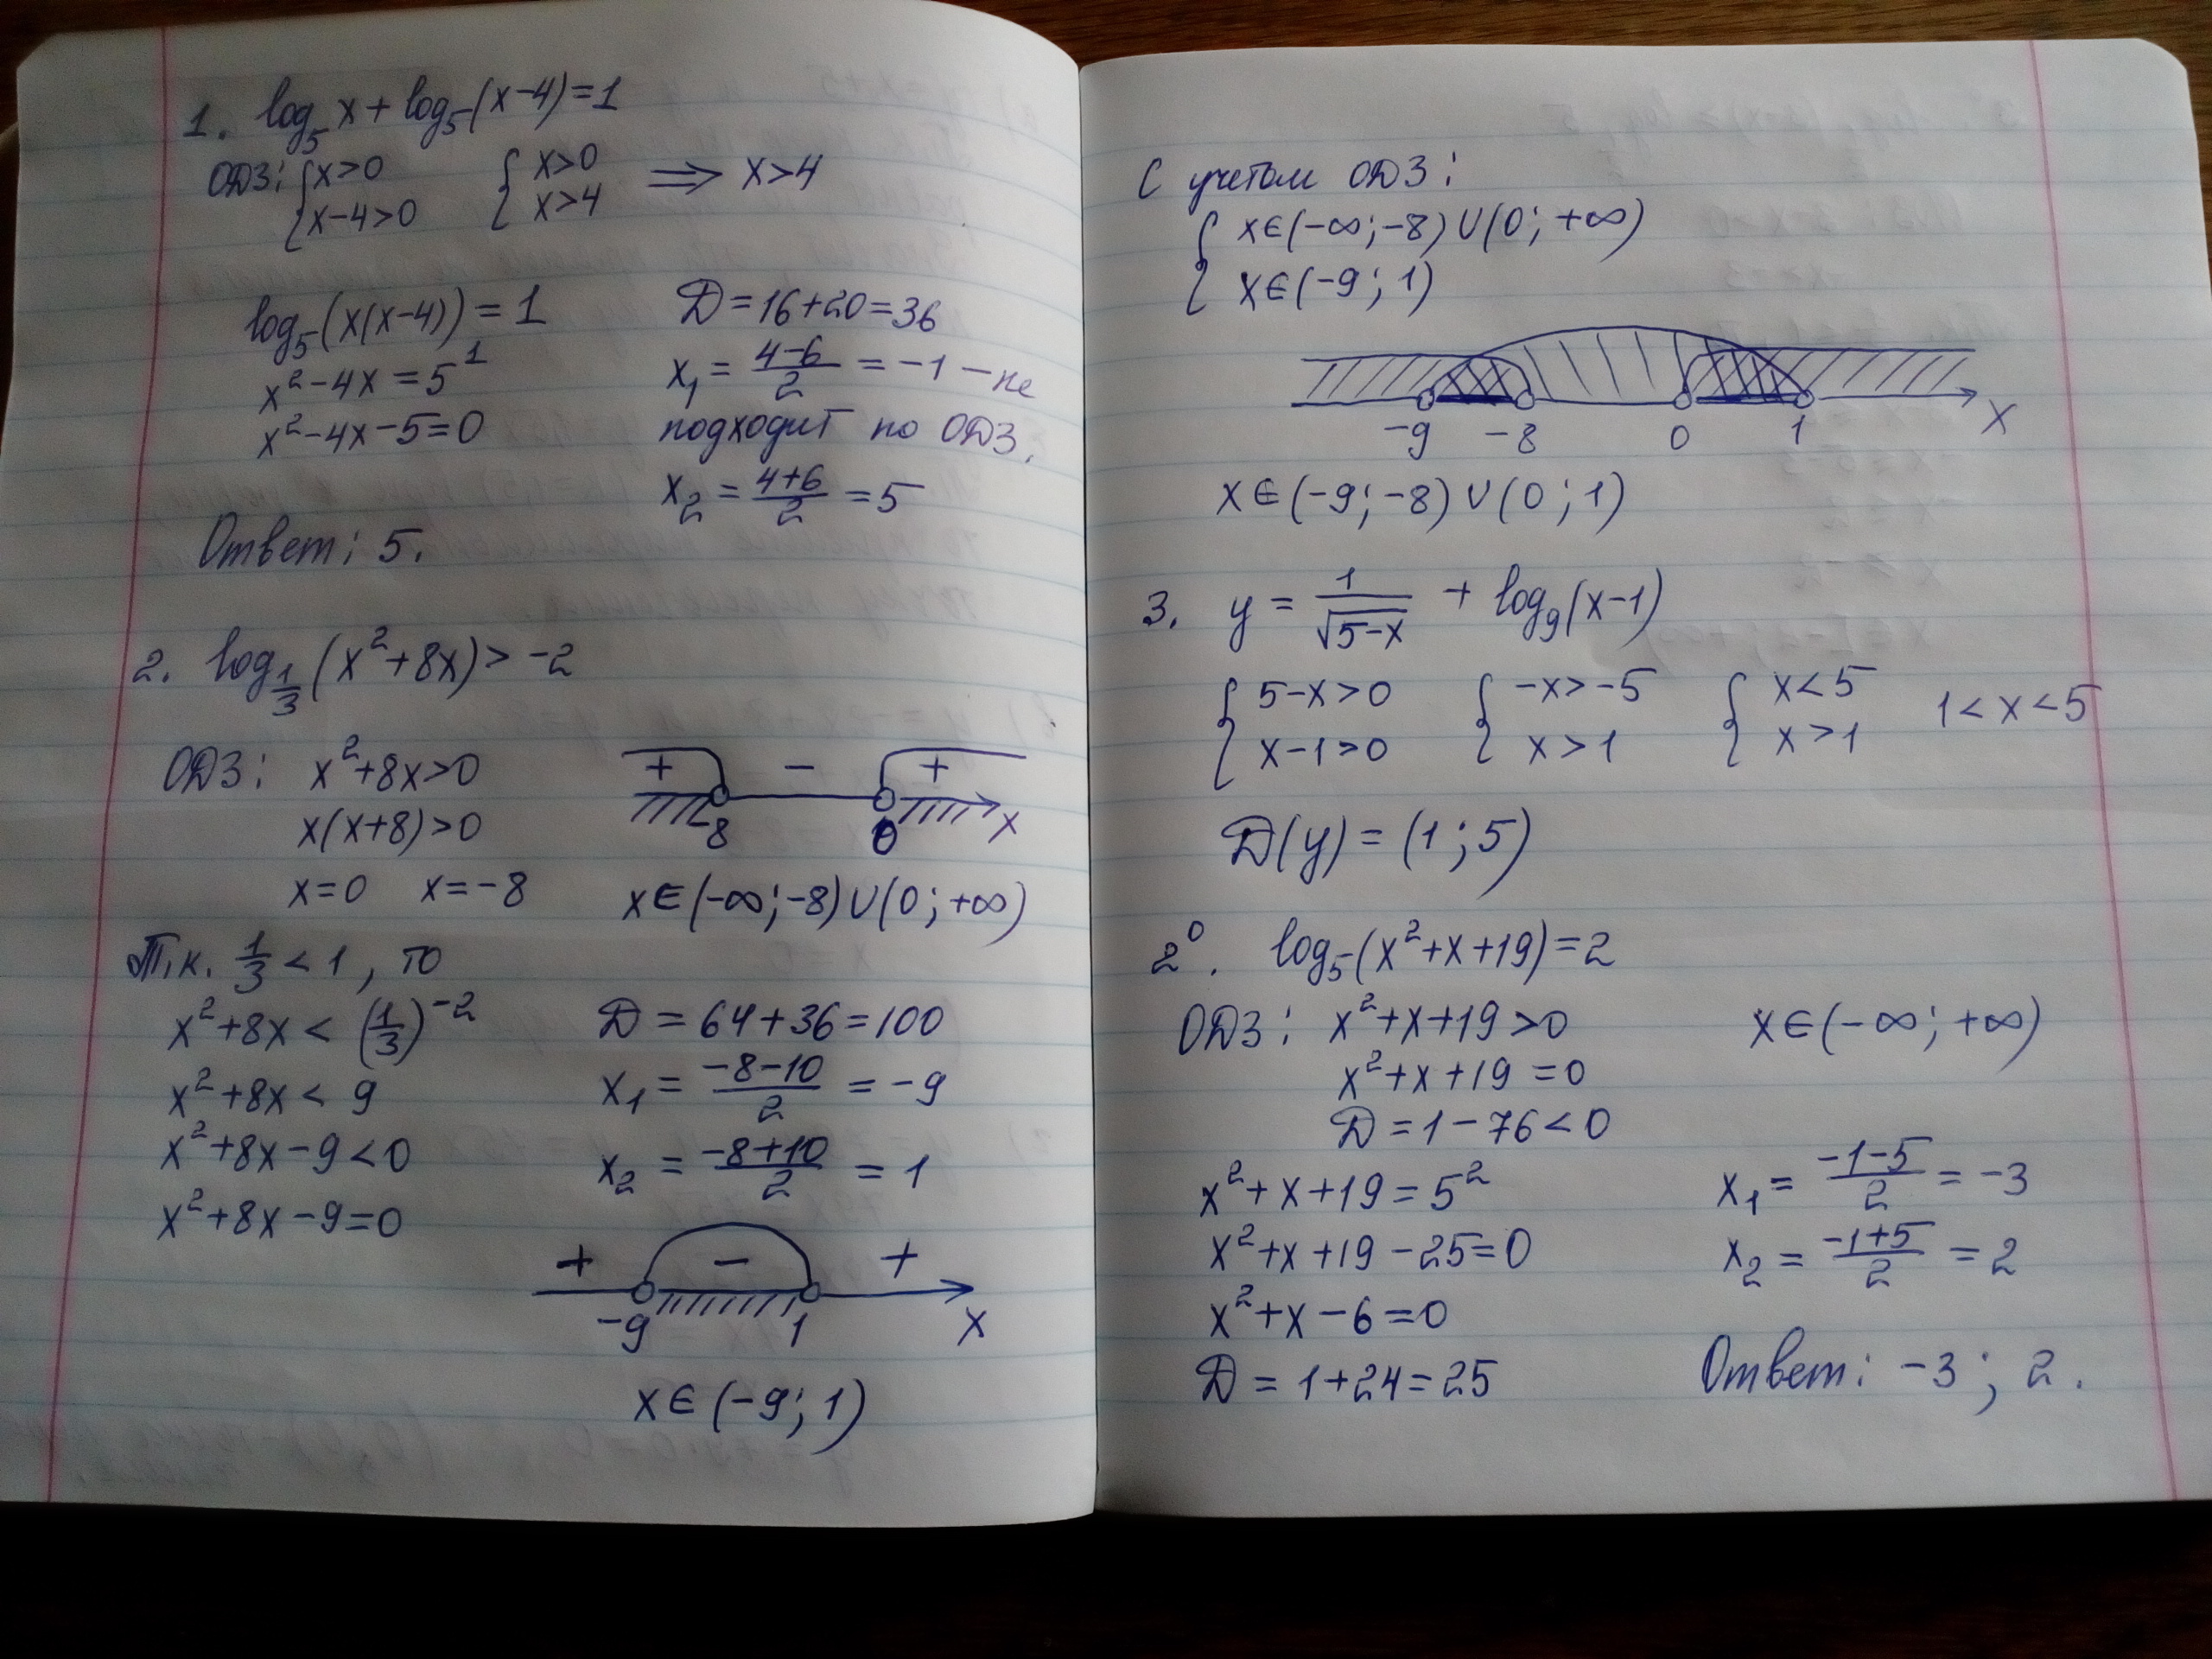 1. log₅ x + log₅ (x-4) = 1
ОДЗ: { x>0 { x>0 ⟹ x>4
x-4>0 x>4
log₅ (x(x-4)) = 1
x² - 4x = 5¹
x² - 4x - 5 = 0
D = 16+20 = 36
x₁ = (4-6)/2 = -1 - не
подходит по ОДЗ.
x₂ = (4+6)/2 = 5
Ответ: 5.
2. log_{1/3} (x² + 8x) > -2
ОДЗ: x² + 8x > 0
x(x+8) > 0
x=0 x=-8
+ - +
-8 0 x
x ∈ (-∞; -8) ∪ (0; +∞)
Т.к. 1/3 < 1, то
x² + 8x < (1/3)⁻²
x² + 8x < 9
x² + 8x - 9 < 0
x² + 8x - 9 = 0
D = 64 + 36 = 100
x₁ = (-8-10)/2 = -9
x₂ = (-8+10)/2 = 1
+ - +
-9 1 x
x ∈ (-9; 1)
С учетом ОДЗ:
{ x ∈ (-∞; -8) ∪ (0; +∞)
x ∈ (-9; 1)
-9 -8 0 1 x
x ∈ (-9; -8) ∪ (0; 1)
3. y = 1/√(5-x) + log₉ (x-1)
{ 5-x>0 { -x>-5 { x<5 1<x<5
x-1>0 x>1 x>1
D(y) = (1; 5)
2⁰. log₅ (x² + x + 19) = 2
ОДЗ: x² + x + 19 > 0 x ∈ (-∞; +∞)
x² + x + 19 = 0
D = 1 - 76 < 0
x² + x + 19 = 5²
x² + x + 19 - 25 = 0
x² + x - 6 = 0
D = 1 + 24 = 25
x₁ = (-1-5)/2 = -3
x₂ = (-1+5)/2 = 2
Ответ: -3; 2.